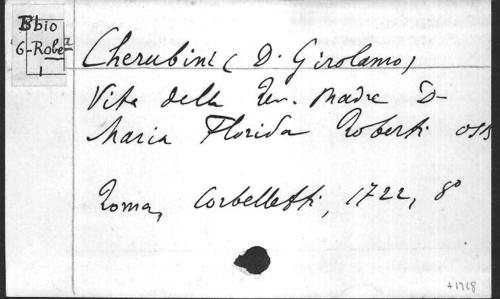 Bbio
6-Robea
1
Cherubini (D. Girolamo)
Vita della Ven. Madre D
Maria Florida Roberti OSB
Roma, Corbelletti, 1722, 8°
+1718